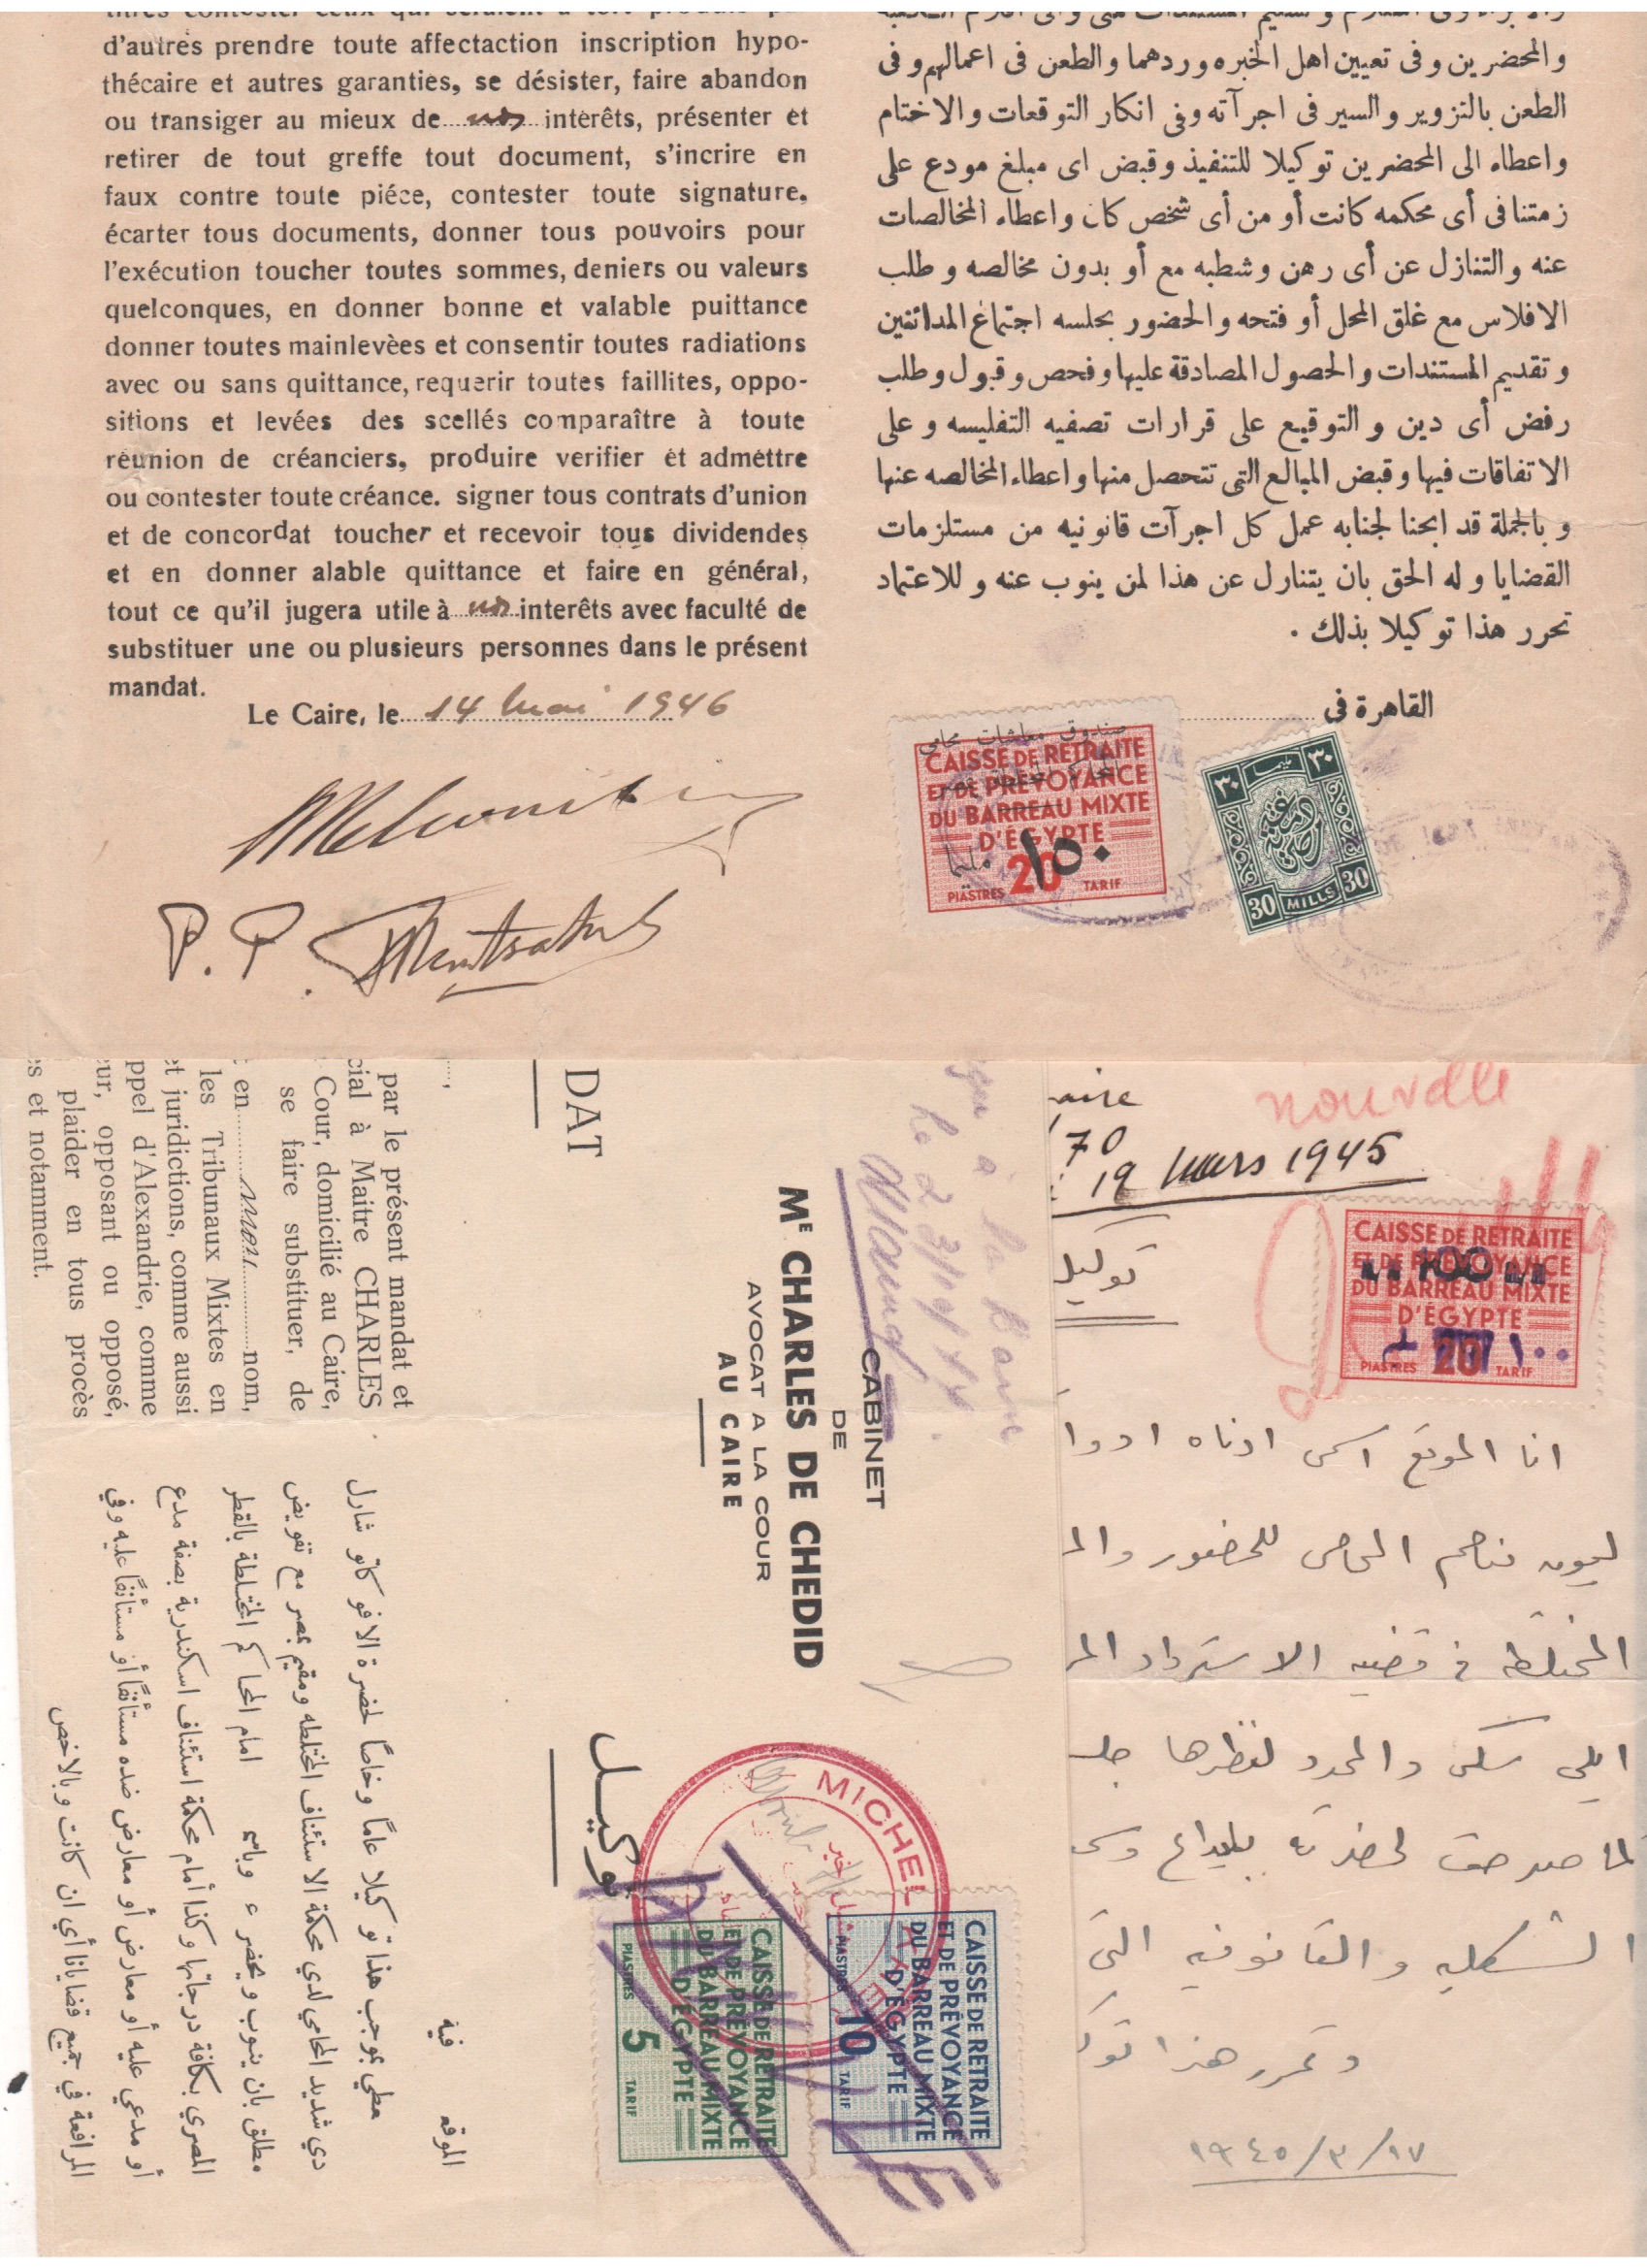 d'autres prendre toute affectaction inscription hypo-
thécaire et autres garanties, se désister, faire abandon
ou transiger au mieux de nos intèrêts, présenter et
retirer de tout greffe tout document, s'incrire en
faux contre toute piéce, contester toute signature,
écarter tous documents, donner tous pouvoirs pour
l'exécution toucher toutes sommes, deniers ou valeurs
quelconques, en donner bonne et valable puittance
donner toutes mainlevèes et consentir toutes radiations
avec ou sans quittance, requerir toutes faillites, oppo-
sitions et levées des scellés comparaître à toute
rèunion de créanciers, produire verifier et admettre
ou contester toute créance. signer tous contrats d'union
et de concordat toucher et recevoir tous dividendes
et en donner alable quittance et faire en général,
tout ce qu'il jugera utile à nos interêts avec faculté de
substituer une ou plusieurs personnes dans le présent
mandat.
Le Caire, le 14 Mai 1946
والمحضرين وفى تعيين اهل الخبره وردهما والطعن فى اعمالهم وفى
الطعن بالتزوير والسير فى اجرآته وفى انكار التوقعات والاختام
واعطاء الى المحضرين توكيلا للتنفيذ وقبض اى مبلغ مودع على
زمتنا فى أى محكمه كانت أو من أى شخص كان واعطاء المخالصات
عنه والتنازل عن أى رهن وشطبه مع أو بدون مخالصه وطلب
الافلاس مع غلق المحل أو فتحه والحضور بجلسه اجتماع المدائنين
وتقديم المستندات والحصول المصادقة عليها وفحص وقبول وطلب
رفض أى دين والتوقيع على قرارات تصفيه التفليسه وعلى
الاتفاقات فيها وقبض المبالع التى تتحصل منها واعطاء المخالصه عنها
وبالجملة قد ابحنا لجنابه عمل كل اجرآت قانونيه من مستلزمات
القضايا وله الحق بان يتنارل عن هذا لمن ينوب عنه وللاعتماد
تحرر هذا توكيلا بذلك .
القاهرة فى
صندوق معاشات محامى
CAISSE DE RETRAITE
ET DE PRÉVOYANCE
DU BARREAU MIXTE
D'ÉGYPTE
١٥٠ مليما
PIASTRES 20 TARIF
٣٠ مليما ٣٠
دمغة مصرية
30 MILLS 30
P. P.
DAT
par le présent mandat et
cial à Maitre CHARLES
Cour, domicilié au Caire,
se faire substituer, de
en mon nom,
les Tribunaux Mixtes en
et juridictions, comme aussi
ppel d'Alexandrie, comme
ur, opposant ou opposé,
plaider en tous procès
s et notamment.
CABINET
DE
ME CHARLES DE CHEDID
AVOCAT A LA COUR
AU CAIRE
توكيـل
الموقع فية
عطي بموجب هذا توكيلا عاماً وخاصاً لحضرة الافوكاتو شارل
دي شديد المحامي لدي محكمة الاستئناف المختلطه ومقيم بمصر مع تفويض
مطلق بان ينوب ويحضر ء وباسم امام المحاكم المختلطة بالقطر
المصري بكافة درجاتها وكذا أمام محكمة استئناف اسكندرية بصفة مدع
أو مدعي عليه أو معارض أو معارض ضده مستأنفاً أو مستأنفاً عليه وفي
المرافعة في جميع قضايانا أي ان كانت وبالاخص
MICHEL
CAISSE DE RETRAITE
ET DE PRÉVOYANCE
DU BARREAU MIXTE
D'ÉGYPTE
PIASTRES 10 TARIF
CAISSE DE RETRAITE
ET DE PRÉVOYANCE
DU BARREAU MIXTE
D'ÉGYPTE
PIASTRES 5 TARIF
nouvelle
aire
70
19 Mars 1945
CAISSE DE RETRAITE
ET DE PRÉVOYANCE
100
DU BARREAU MIXTE
D'ÉGYPTE
١٠٠
PIASTRES 20 TARIF
توكيل
انا الموقع اسمى ادناه ادوا
المحامى للحضور والم
المختلطه فى قضيه الاسترداد المر
ايلى والمحدد لنظرها جلـ
الشكليه والقانونيه التى
وتحرر هذا توك
١٩٤٥/٣/١٧